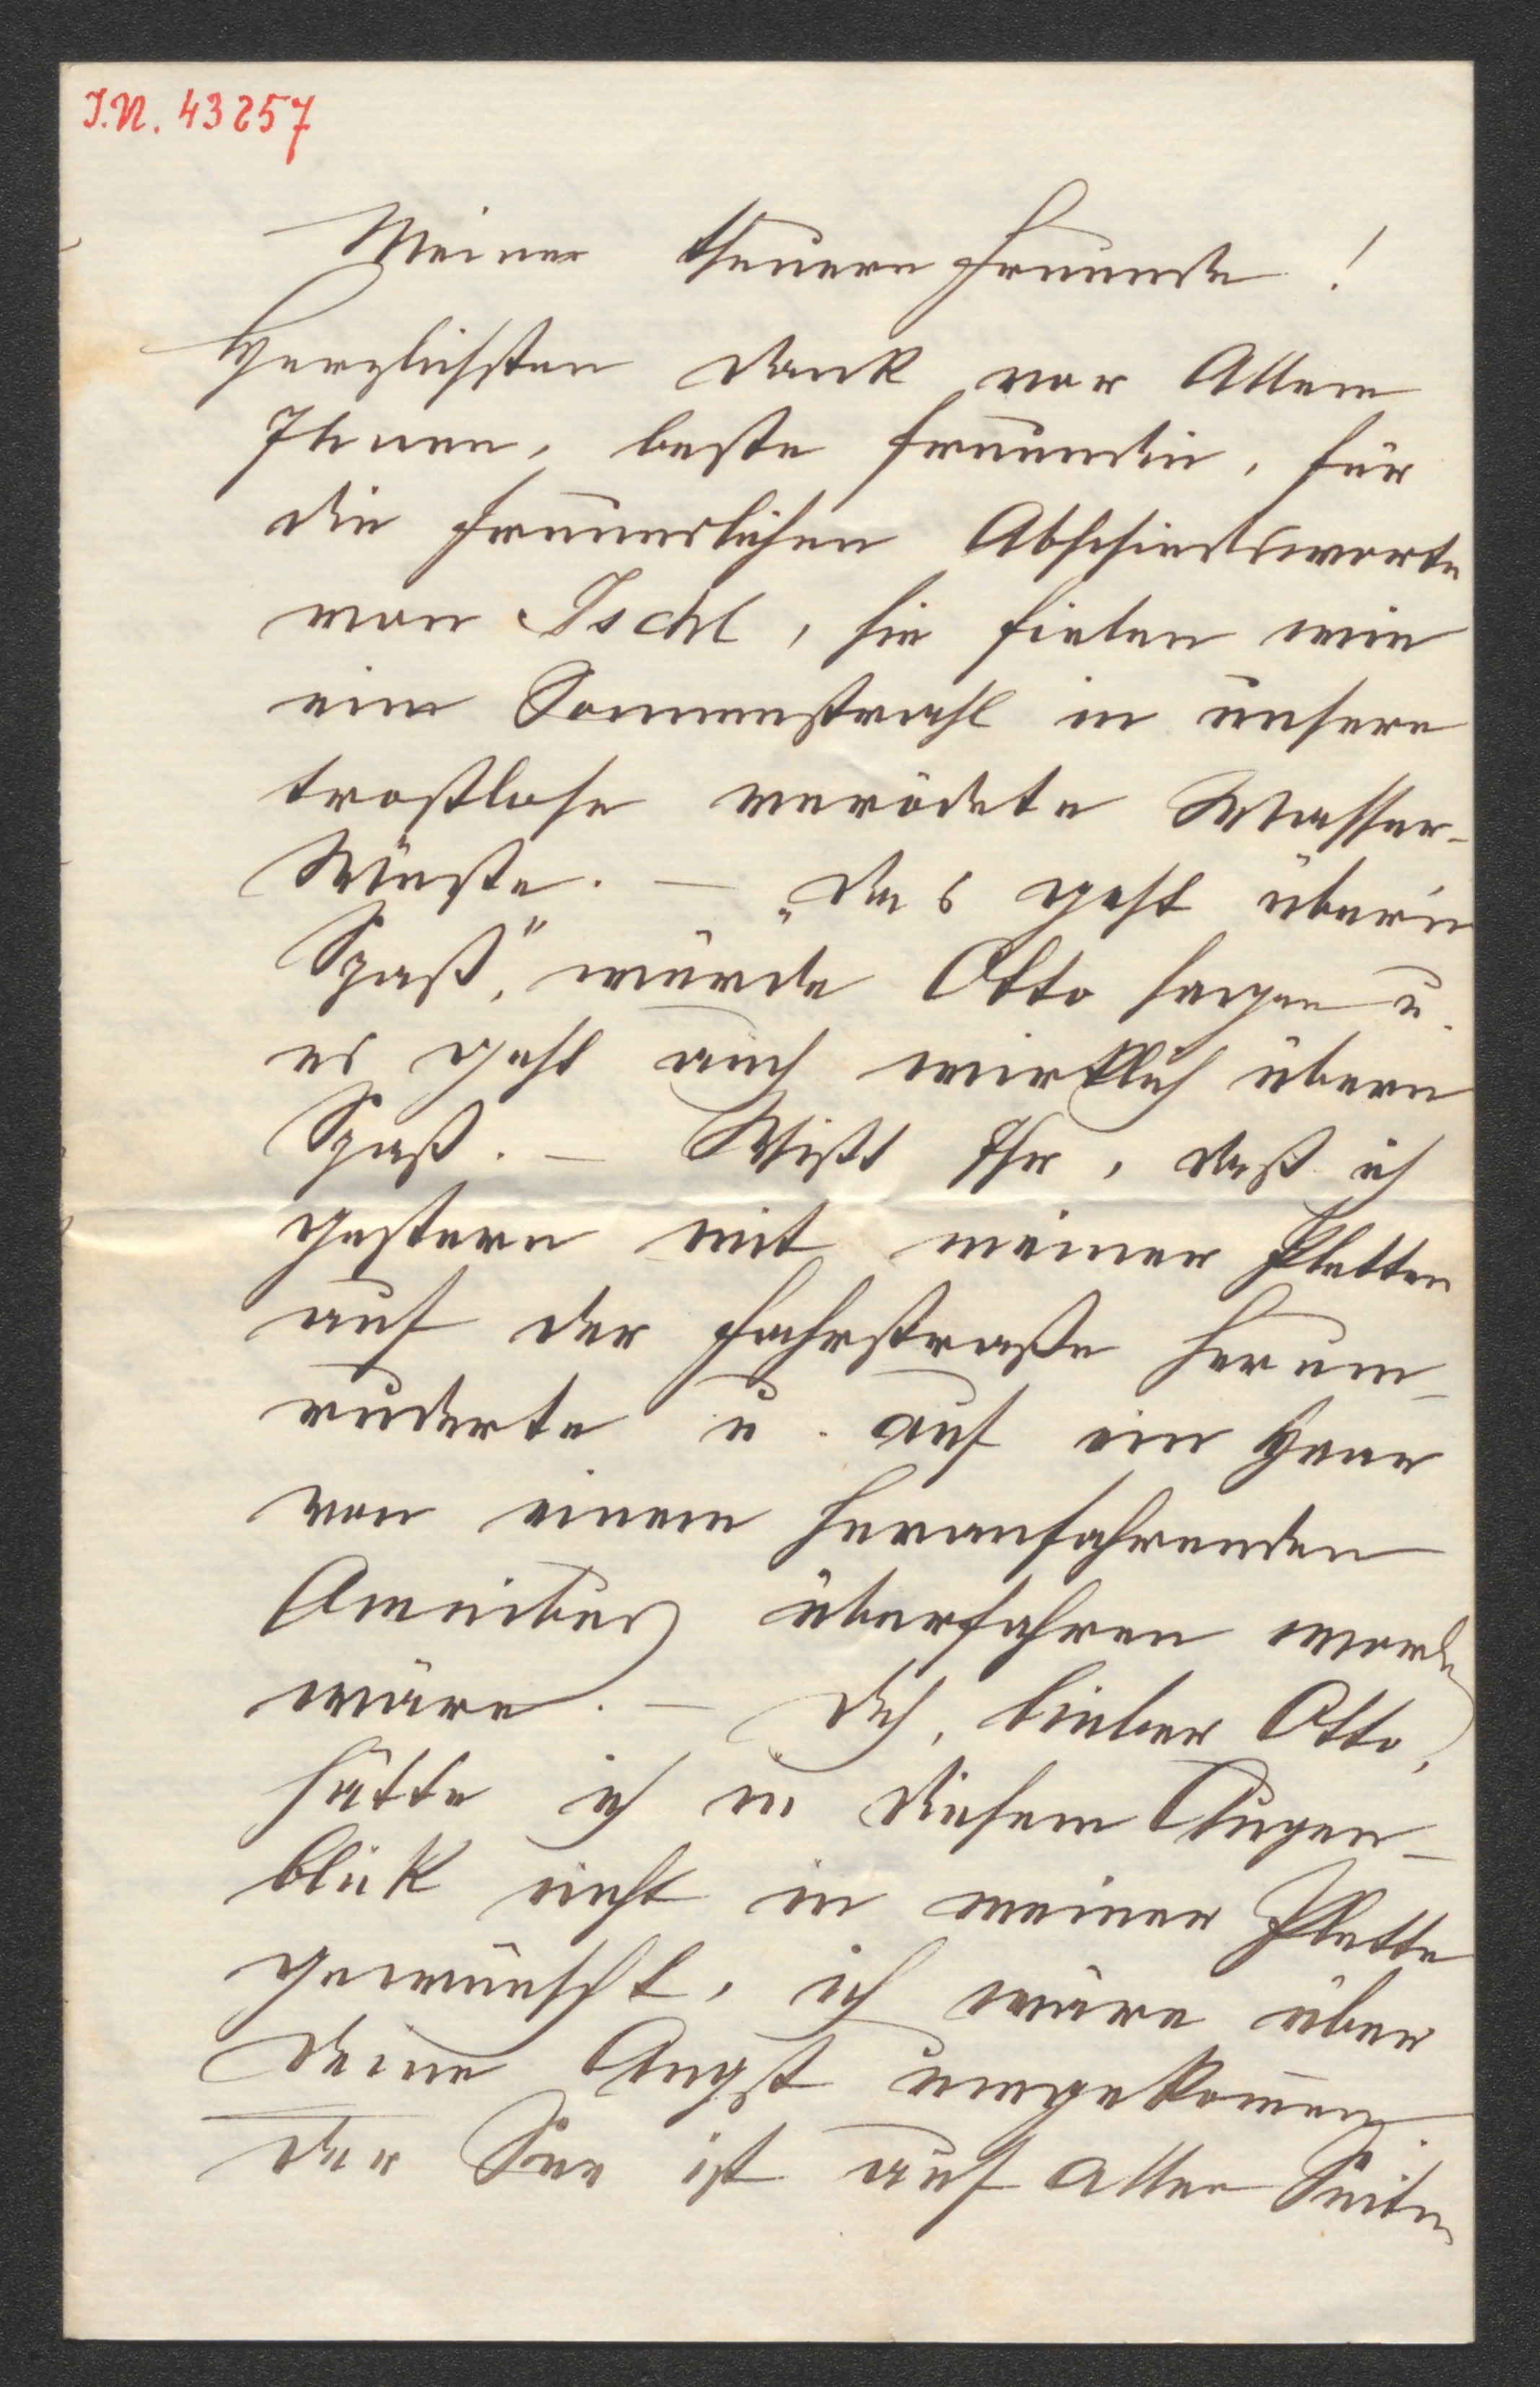 I.N. 43257
Meine theuern Freunde!
Herzlichsten Dank vor Allem
Ihnen, beste Freundin, für
die freundlichen Abschiedsworte
von Ischl, sie fielen wie
ein Sonnenstrahl in unsere
trostlose verödete Wasser-
Wüste. — „Das geht über'n
Spaß", würde Otto sagen u.
es geht auch wirklich übern
Spaß. — Wißt Ihr, daß ich
gestern mit meiner Pletten
auf der Fahrstraße herum-
ruderte u. auf ein Haar
von einem heranfahrenden
Omnibus überfahren worden
wäre. — Dich, lieber Otto,
hätte ich in diesem Augen-
blick nicht in meiner Plette
gewünscht, ich wäre über
deine Angst umgekomen
Der See ist auf allen Seiten